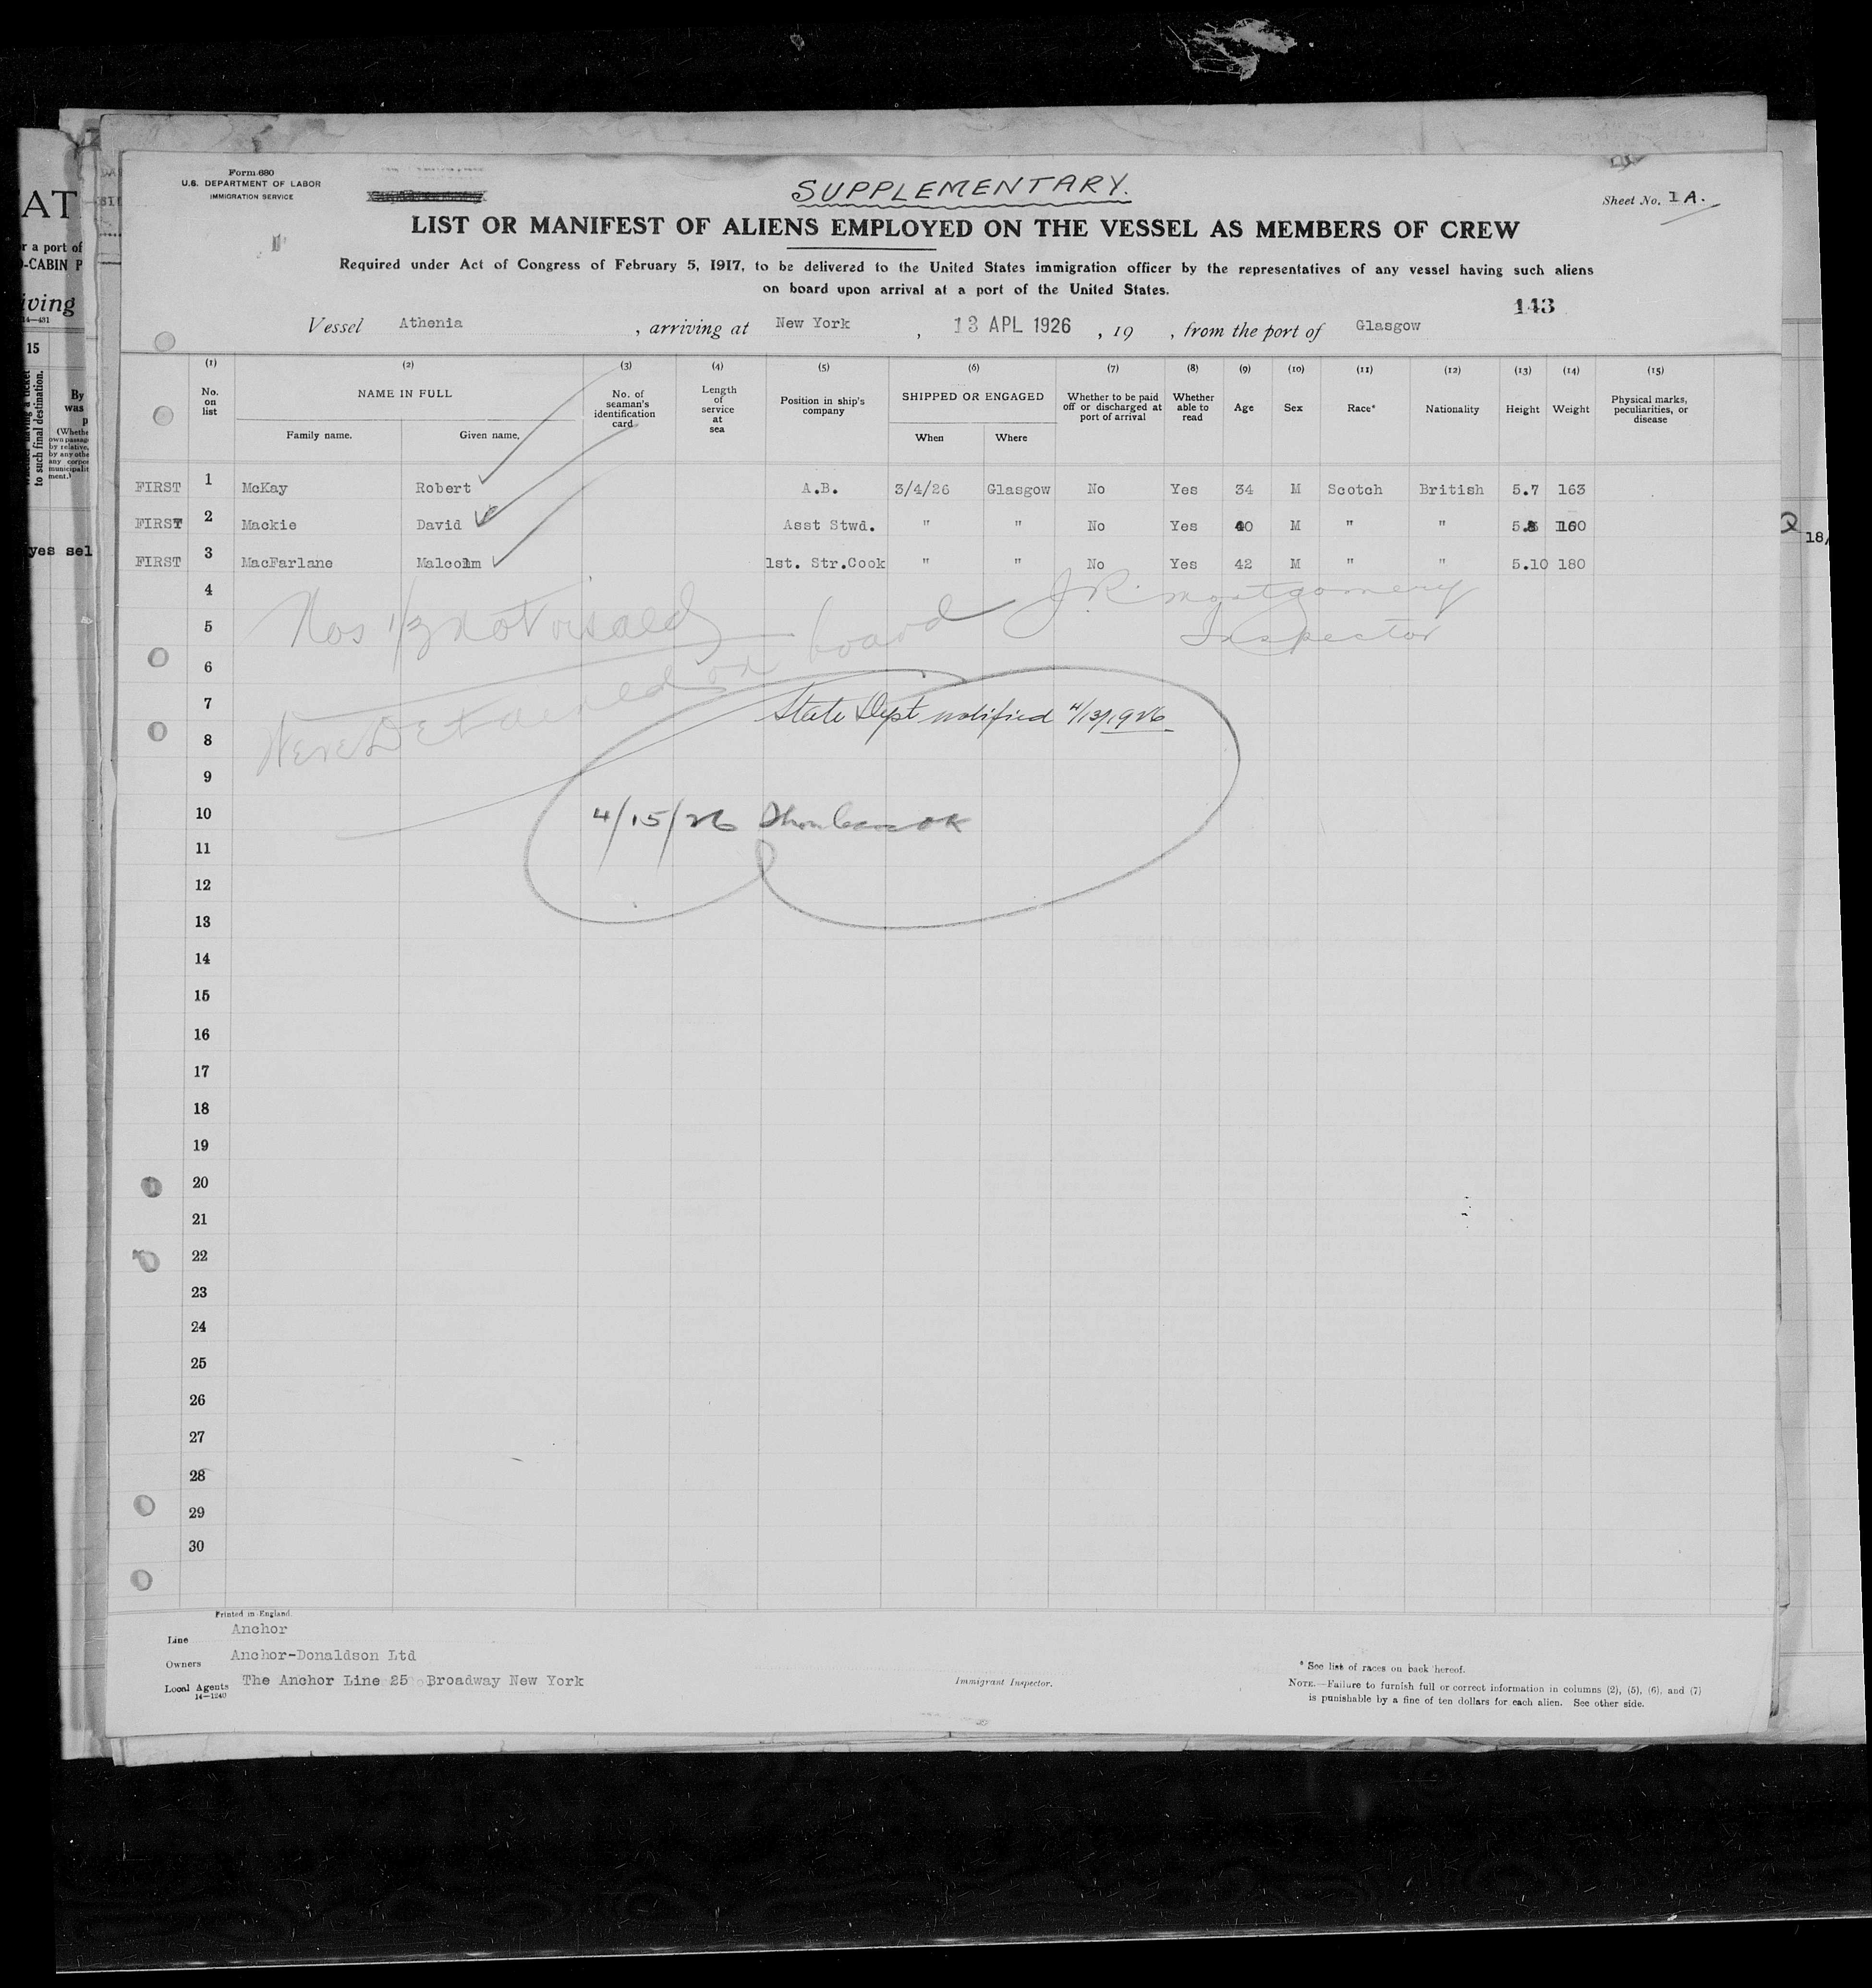 Form 680
U.S. DEPARTMENT OF LABOR
IMMIGRATION SERVICE
SUPPLEMENTARY.
Sheet No. 1A.
LIST OR MANIFEST OF ALIENS EMPLOYED ON THE VESSEL AS MEMBERS OF CREW
Required under Act of Congress of February 5, 1917, to be delivered to the United States immigration officer by the representatives of any vessel having such aliens
on board upon arrival at a port of the United States.
143
Vessel Athenia , arriving at New York , 13 APL 1926 , 19 , from the port of Glasgow
(1) (2) (3) (4) (5) (6) (7) (8) (9) (10) (11) (12) (13) (14) (15)
No. on list
NAME IN FULL
Family name. Given name.
No. of seaman's identification card
Length of service at sea
Position in ship's company
SHIPPED OR ENGAGED
When Where
Whether to be paid off or discharged at port of arrival
Whether able to read
Age
Sex
Race*
Nationality
Height
Weight
Physical marks, peculiarities, or disease
FIRST 1 McKay Robert A.B. 3/4/26 Glasgow No Yes 34 M Scotch British 5.7 163
FIRST 2 Mackie David Asst Stwd. " " No Yes 40 M " " 5.8 160
FIRST 3 MacFarlane Malcolm 1st. Str.Cook " " No Yes 42 M " " 5.10 180
4
Nos 1/3 not visaed
J.R. Montgomery
5
Inspector
6
Were Detained on board
7
State Dept notified 4/13/1926
8
9
10
4/15/26
OK
11
12
13
14
15
16
17
18
19
20
21
22
23
24
25
26
27
28
29
30
Printed in England.
Line Anchor
Owners Anchor-Donaldson Ltd
Local Agents The Anchor Line 25 Broadway New York
14—1240
Immigrant Inspector.
* See list of races on back hereof.
NOTE.—Failure to furnish full or correct information in columns (2), (5), (6), and (7)
is punishable by a fine of ten dollars for each alien. See other side.
AT
r a port of
-CABIN P
iving
15
to such final destination.
By
was
yes sel
18/